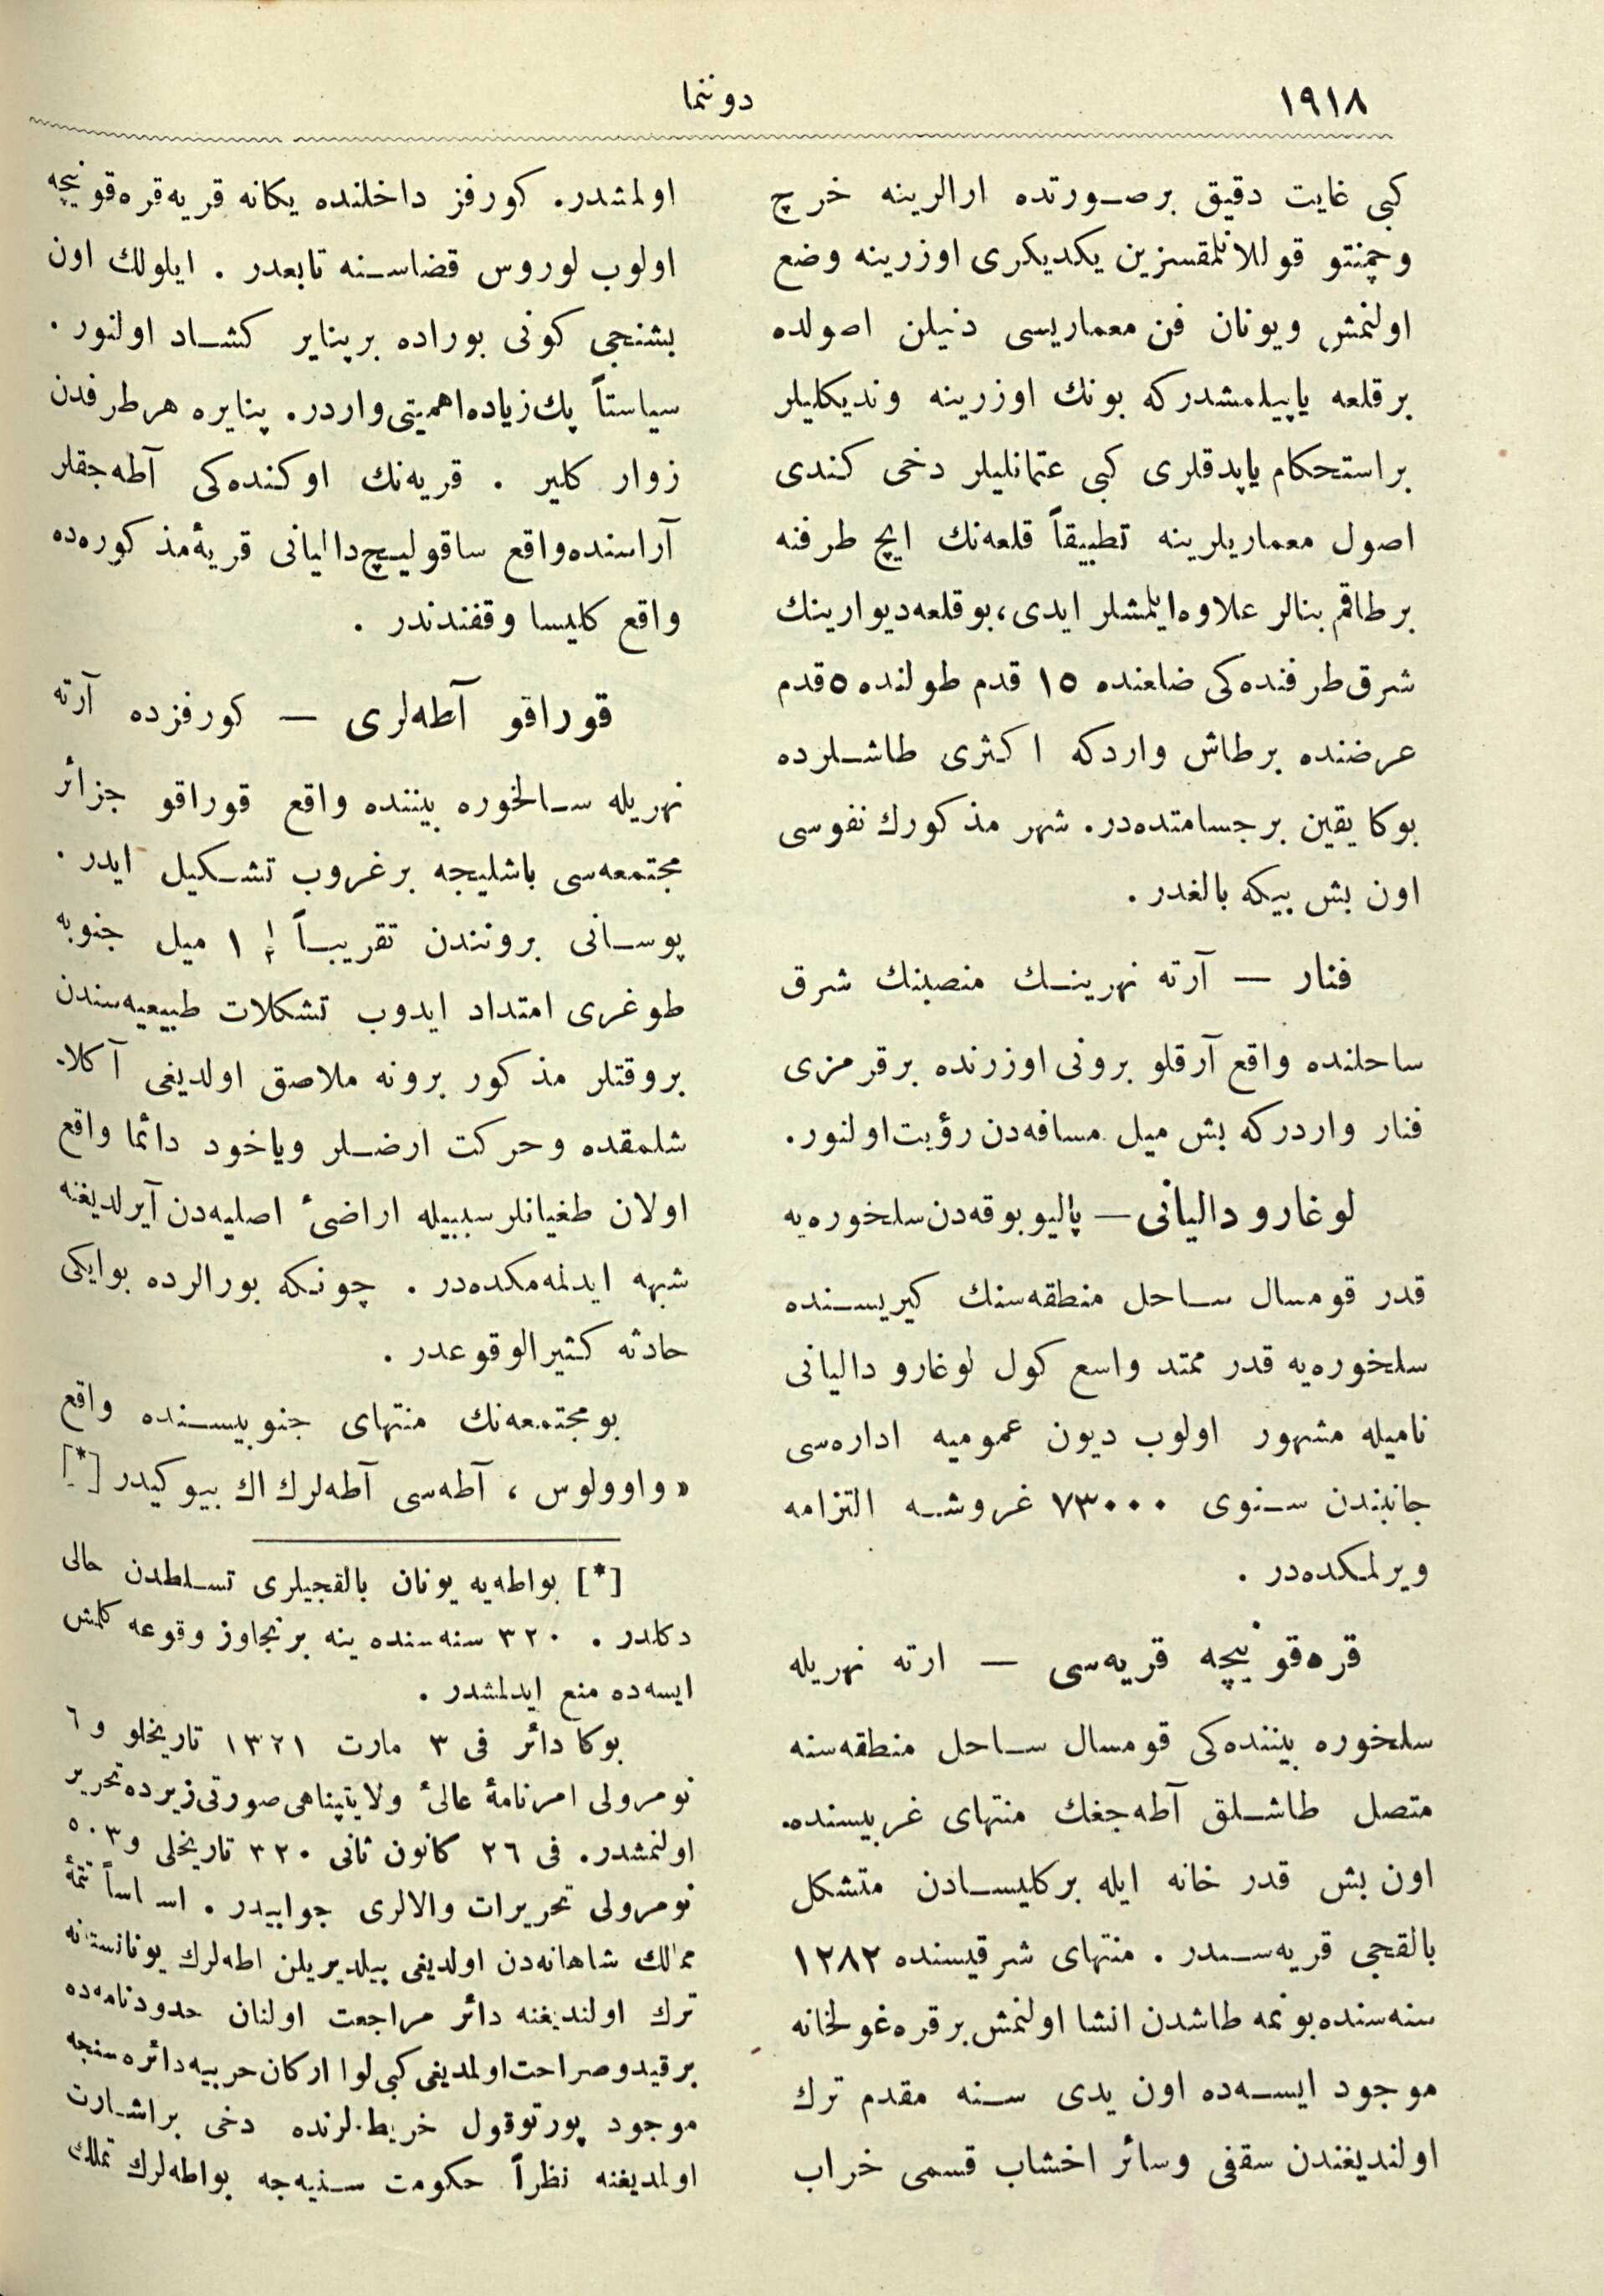 ١٩١٨
دوننما
كبى غايت دقيق برصورتده ارالرينه خرج
وچمنتو قوللانلمقسزين يكديكرى اوزرينه وضع
اولنمش ويونان فن معماريسى دنيلن اصولده
برقلعه ياپيلمشدركه بونك اوزرينه ونديكليلر
براستحكام ياپدقلرى كبى عثمانليلر دخى كندى
اصول معماريلرينه تطبيقاً قلعه‌نك ايچ طرفنه
برطاقم بنالر علاوه ايلمشلر ايدى، بو قلعه ديوارينك
شرق طرفنده‌كى ضلعنده ١٥ قدم طولنده ٥ قدم
عرضنده برطاش واردكه اكثرى طاشلرده
بوكا يقين برجسامتده‌در. شهر مذكورك نفوسى
اون بش بيكه بالغدر.
فنار — آرته نهرينك منصبنك شرق
ساحلنده واقع آرقلو برونى اوزرنده برقرمزى
فنار واردركه بش ميل مسافه‌دن رؤيت اولنور.
لوغارو داليانى — پاليوبوقه‌دن سلخوره‌يه
قدر قومسال ساحل منطقه‌سنك كيريسنده
سلخوره‌يه قدر ممتد واسع كول لوغارو داليانى
ناميله مشهور اولوب ديون عموميه اداره‌سى
جانبندن سنوى ٧٣٠٠٠ غروشه التزامه
ويرلمكده‌در.
قره‌قونيچه قريه‌سى — ارته نهريله
سلخوره بيننده‌كى قومسال ساحل منطقه‌سنه
متصل طاشلق آطه‌جغك منتهاى غربيسنده
اون بش قدر خانه ايله بركليسادن متشكل
بالقجى قريه‌سيدر. منتهاى شرقيسنده ١٢٨٢
سنه‌سنده يونمه طاشدن انشا اولنمش برقره‌غولخانه
موجود ايسه‌ده اون يدى سنه مقدم ترك
اولنديغندن سقفى وسائر اخشاب قسمى خراب
اولمشدر. كورفز داخلنده يكانه قريه قره‌قونيچه
اولوب لوروس قضاسنه تابعدر. ايلولك اون
بشنجى كونى بوراده برپناير كشاد اولنور.
سياستاً پك زياده اهميتى واردر. پنايره هرطرفدن
زوار كلير. قريه‌نك اوكنده‌كى آطه‌جقلر
آراسنده واقع ساقوليچ داليانى قريۀ مذكوره‌ده
واقع كليسا وقفندندر.
قوراقو آطه‌لرى — كورفزده آرته
نهريله سالخوره بيننده واقع قوراقو جزائر
مجتمعه‌سى باشليجه برغروب تشكيل ايدر.
پوسانى بروننندن تقريباً ١ ١/٢ ميل جنوبه
طوغرى امتداد ايدوب تشكلات طبيعيه‌سندن
بروقتلر مذكور برونه ملاصق اولديغى آكلا-
شلمقده وحركت ارضلر وياخود دائما واقع
اولان طغيانلر سببيله اراضئ اصليه‌دن آيرلديغنه
شبهه ايدلمه‌مكده‌در. چونكه بورالرده بوايكى
حادثه كثيرالوقوعدر.
بومجتمعه‌نك منتهاى جنوبيسنده واقع
«واوولوس، آطه‌سى آطه‌لرك اك بيوكيدر [*]
[*] بواطه‌يه يونان بالقجيلرى تسلطدن خالى
دكلدر. ٣٢٠ سنه‌سنده ينه برتجاوز وقوعه كلمش
ايسه‌ده منع ايدلمشدر.
بوكا دائر فى ٣ مارت ١٣٢١ تاريخلو و ٦
نومرولى امرنامۀ عالئ ولايتپناهى صورتى زيرده تحرير
اولنمشدر. فى ٢٦ كانون ثانى ٣٢٠ تاريخلى و ٥٠٣
نومرولى تحريرات والالرى جوابيدر. اساساً تتمۀ
ممالك شاهانه‌دن اولديغى بيلديريلن اطه‌لرك يونانستانه
ترك اولنديغنه دائر مراجعت اولنان حدودنامه‌ده
برقيد وصراحت اولمديغى كبى لوا اركان حربيه دائره‌سنجه
موجود پورتوقول خريطه‌لرنده دخى براشارت
اولمديغنه نظراً حكومت سنيه‌جه بواطه‌لرك تملك